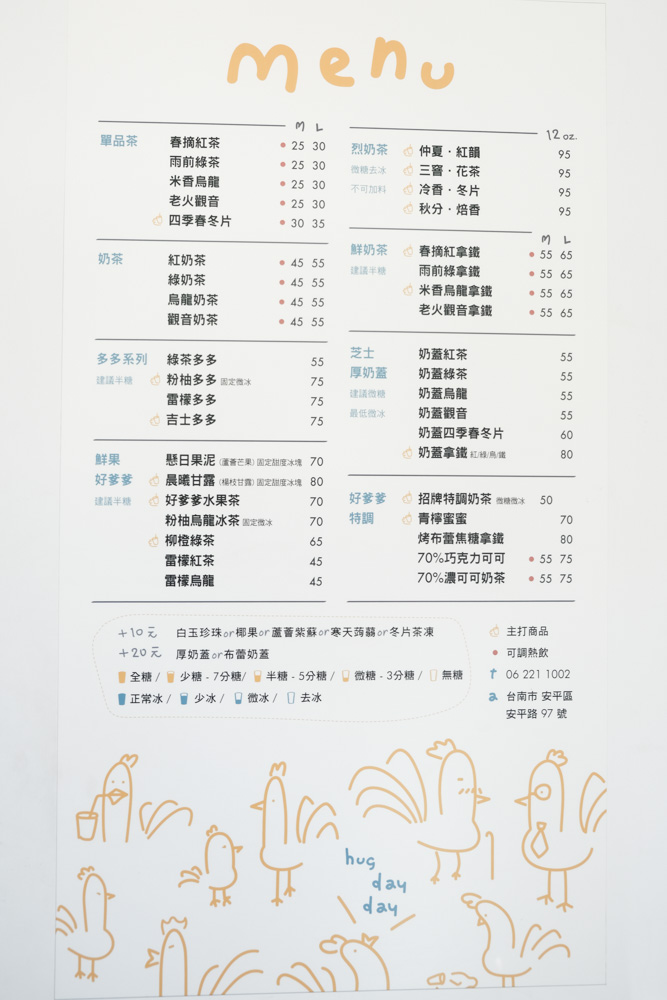 menu
M L
單品茶 春摘紅茶 25 30
雨前綠茶 25 30
米香烏龍 25 30
老火觀音 25 30
四季春冬片 30 35
奶茶 紅奶茶 45 55
綠奶茶 45 55
烏龍奶茶 45 55
觀音奶茶 45 55
多多系列 綠茶多多 55
建議半糖 粉柚多多 固定微冰 75
雷檬多多 75
吉士多多 75
鮮果 懸日果泥 (蘆薈芒果) 固定甜度冰塊 70
好爹爹 晨曦甘露 (楊枝甘露) 固定甜度冰塊 80
建議半糖 好爹爹水果茶 70
粉柚烏龍冰茶 固定微冰 70
柳橙綠茶 65
雷檬紅茶 45
雷檬烏龍 45
12 oz.
烈奶茶 仲夏·紅韻 95
微糖去冰 三窨·花茶 95
不可加料 冷香·冬片 95
秋分·焙香 95
M L
鮮奶茶 春摘紅拿鐵 55 65
建議半糖 雨前綠拿鐵 55 65
米香烏龍拿鐵 55 65
老火觀音拿鐵 55 65
芝士 奶蓋紅茶 55
厚奶蓋 奶蓋綠茶 55
建議微糖 奶蓋烏龍 55
最低微冰 奶蓋觀音 55
奶蓋四季春冬片 60
奶蓋拿鐵 紅/綠/烏/鐵 80
好爹爹 招牌特調奶茶 微糖微冰 50
特調 青檸蜜蜜 70
烤布蕾焦糖拿鐵 80
70%巧克力可可 55 75
70%濃可可奶茶 55 75
+10元 白玉珍珠or椰果or蘆薈紫蘇or寒天蒟蒻or冬片茶凍
+20元 厚奶蓋or布蕾奶蓋
全糖 / 少糖 - 7分糖/ 半糖 - 5分糖 / 微糖 - 3分糖 / 無糖
正常冰 / 少冰 / 微冰 / 去冰
主打商品
可調熱飲
t 06 221 1002
a 台南市 安平區
安平路 97 號
hug
day
day